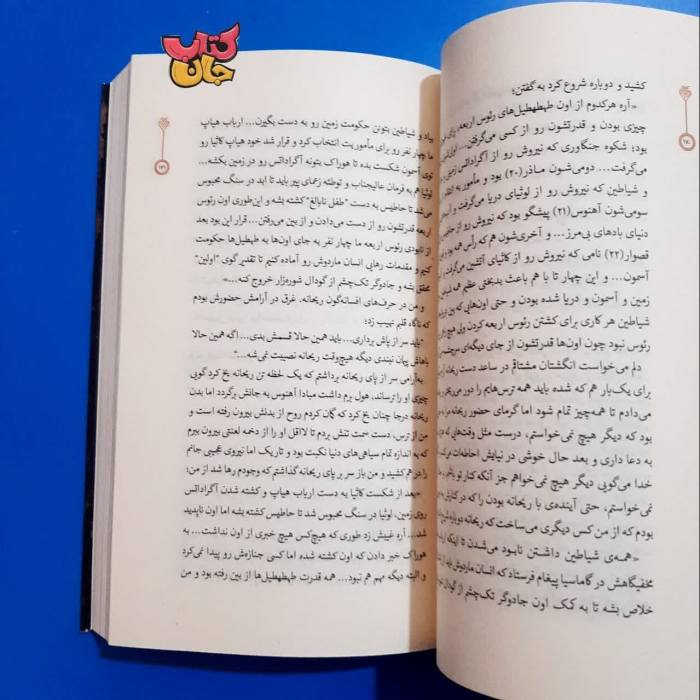 کتاب
جان
کشید و دوباره شروع کرد به گفتن؛
«آره هرکدوم از اون طهطهطیل‌های رئوس اربعه، برای
چیزی بودن و قدرتشون رو از کسی می‌گرفتن... اولی
بود؛ شکوه جنگاوری که نیروش رو از آگراداتس زمینی
می‌گرفت... دومی‌شون مـاذر(۲۰) بود و مأمور به
و شیاطین که نیروش رو از لوثیای دریا می‌گرفت و
سومی‌شون آهنوس(۲۱) پیشگو بود که نیروش رو از
دنیای بادهای بی‌مرز... و آخری‌شون هم که رأس همه بود
قصوار(۲۲) نامی که نیروش رو از کاثیای آتشین می‌گرفت
آسمون... و این چهار تا با هم باعث بدبختی عظیم همه
زمین و آسمون و دریا شده بودن و حتی اون‌هایی که بین
شیاطین هر کاری برای کشتن رئوس اربعه کردن ولی هیچ
رئوس نبود چون اون‌ها قدرتشون از جای دیگه‌ای
دلم می‌خواست انگشتان مشتاقم در ساعد دست ریحانه
برای یک‌بار هم که شده باید همه ترس‌هایم را دور می‌ریختم
می‌دادم تا همه‌چیز تمام شود اما گرمای حضور ریحانه
بود که دیگر هیچ نمی‌خواستم، درست مثل وقت‌هایی که
به دعا داری و بعد حال خوشی در نیایش احاطه‌ات
خدا می‌گویی دیگر هیچ نمی‌خواهم جز آنکه کنار تو
نمی‌خواستم، حتی آینده‌ی با ریحانه بودن را که در کنارش
بودم که از من کس دیگری می‌ساخت که ریحانه دوباره
«همه‌ی شیاطین داشتن نابود می‌شدن تا اینکه
مخفیگاهش در گاماسیا پیغام فرستاد که انسان ماردوش باید از
خلاص بشه تا به کک اون جادوگر تک‌چشم از گودال
۱۷۱
بیاد و شیاطین بتونن حکومت زمین رو به دست بگیرن... ارباب هیاپ
ما چهار نفر رو برای مأموریت انتخاب کرد و قرار شد خود هیاپ کاثیا رو
توی آسمون شکست بده تا هوراک بتونه آگراداتس رو در زمین بکشه...
لوثیا هم به فرمان عالیجناب و توطئه زعمای پیر باید تا ابد در سنگ محبوس
می‌شد تا حاطیس به دست "طفل نابالغ" کشته بشه و این‌طوری اون رئوس
اربعه قدرتشون رو از دست می‌دادن و از بین می‌رفتن... قرار این بود بعد
از نابودی رئوس اربعه ما چهار نفر به جای اون‌ها به طهطیل‌ها حکومت
کنیم و مقدمات رهایی انسان ماردوش رو آماده کنیم تا تقدیر گوی "اولین"
محقق بشه و جادوگر تک‌چشم از گودال شوره‌زار خروج کنه...»
و من در حرف‌های افسانه‌گون ریحانه، غرق در آرامش حضورش بودم
که ناگاه قلبم نهیب زد؛
"باید سر از پاش برداری... باید همین حالا قسمش بدی... اگه همین حالا
باهاش پیمان نبندی دیگه هیچ‌وقت ریحانه نصیبت نمی‌شه..."
به‌آرامی سر از پای ریحانه برداشتم که یک لحظه تن ریحانه یخ کرد گویی
چیزی او را ترساند، هول برم داشت مبادا آهنوس به جانش برگردد اما بدن
ریحانه درجا چنان یخ کرد که گمان کردم روح از بدنش بیرون رفته است و
من از ترس، دست سمت تنش بردم تا لااقل او را از دخمه لعنتی بیرون ببرم
که به اندازه تمام سیاهی‌های دنیا نکبت بود و تاریک اما نیروی عجیبی جانم
را در هم کشید و من باز سر بر پای ریحانه گذاشتم که وجودم رها شد از من؛
«بعد از شکست کاثیا به دست ارباب هیاپ و کشته شدن آگراداتس
روی زمین، لوثیا در سنگ محبوس شد تا حاطیس کشته بشه اما اون ناپدید
شد... آره غیبش زد طوری که هیچ‌کس هیچ خبری از اون نداشت... به
هوراک خبر دادن که اون کشته شده اما کسی جنازه‌ش رو پیدا نمی‌کرد
و البته دیگه مهم هم نبود... همه قدرت طهطهطیل‌ها از بین رفته بود و من